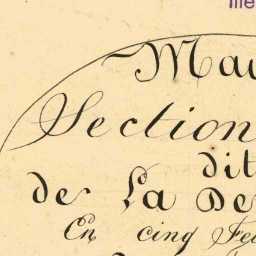 Mau
Section
dit
de La De
En cinq Feu